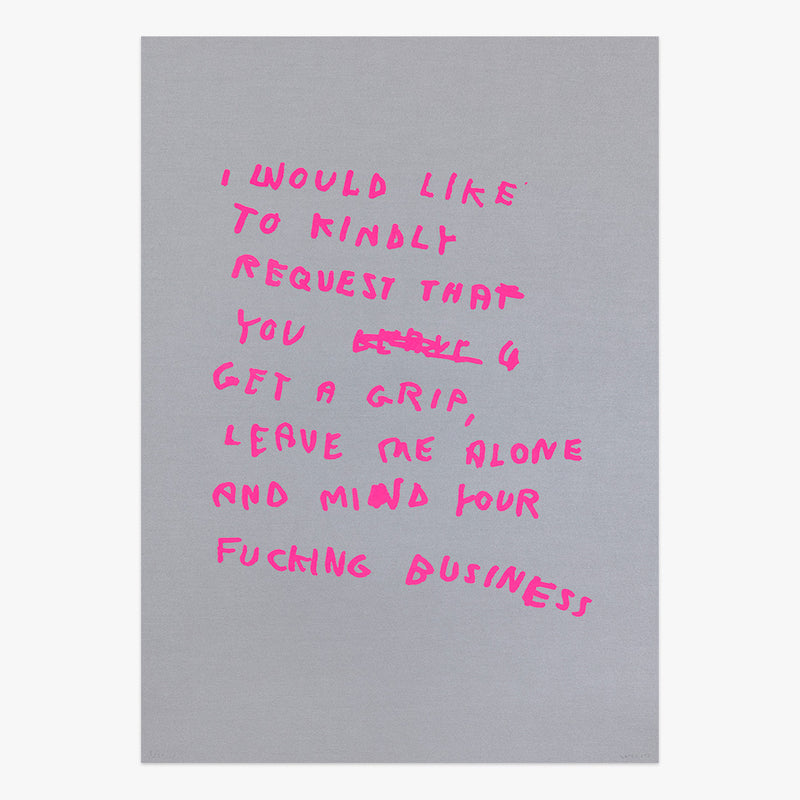 I WOULD LIKE
TO KINDLY
REQUEST THAT
YOU G
GET A GRIP,
LEAVE ME ALONE
AND MIND YOUR
FUCKING BUSINESS